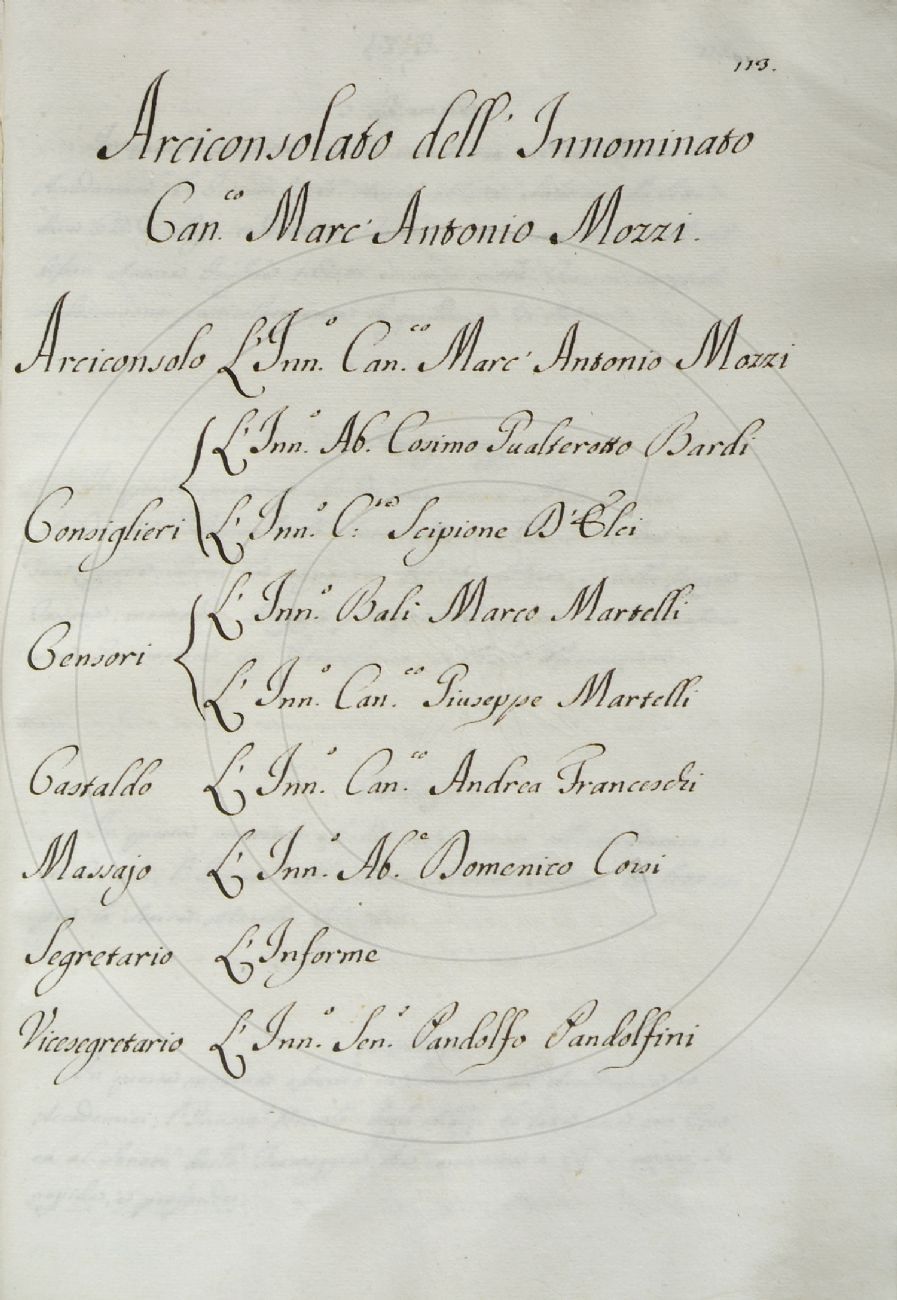 113.
Arciconsolato dell' Innominato
Can.co Marc' Antonio Mozzi.
Arciconsolo L'Inn.o Can.co Marc' Antonio Mozzi
L'Inn.o Ab. Cosimo Gualterotto Bardi
Consiglieri L'Inn.o C:re Scipione D'Elci
L'Inn.o Bali Marco Martelli
Censori
L'Inn.o Can.co Giuseppe Martelli
Castaldo L'Inn.o Can.co Andrea Franceschi
Massajo L'Inn.o Ab.e Domenico Corsi
Segretario L'Informe
Vicesegretario L'Inn.o Sen.e Pandolfo Pandolfini